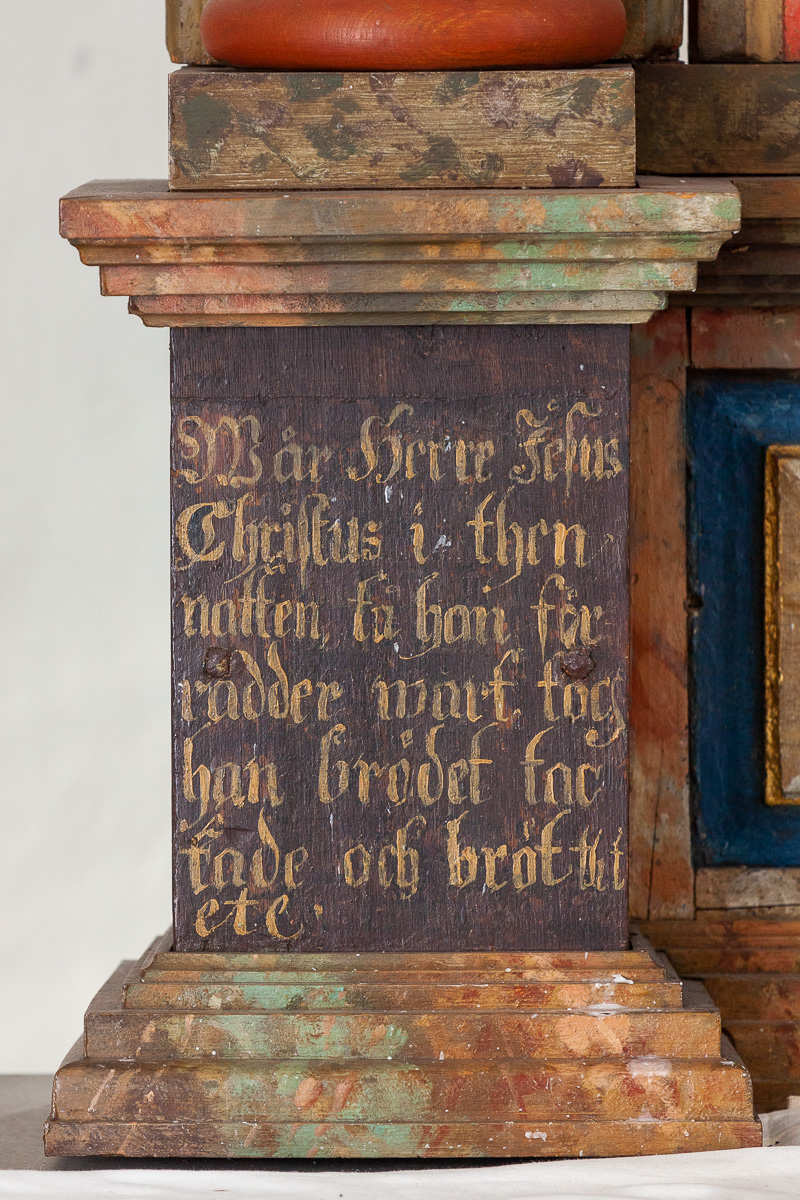 Wår Herre Jesus
Christus i then
natten, tå han för-
rådder wart togh
han brödet tac
kade och bröt thet
etc.